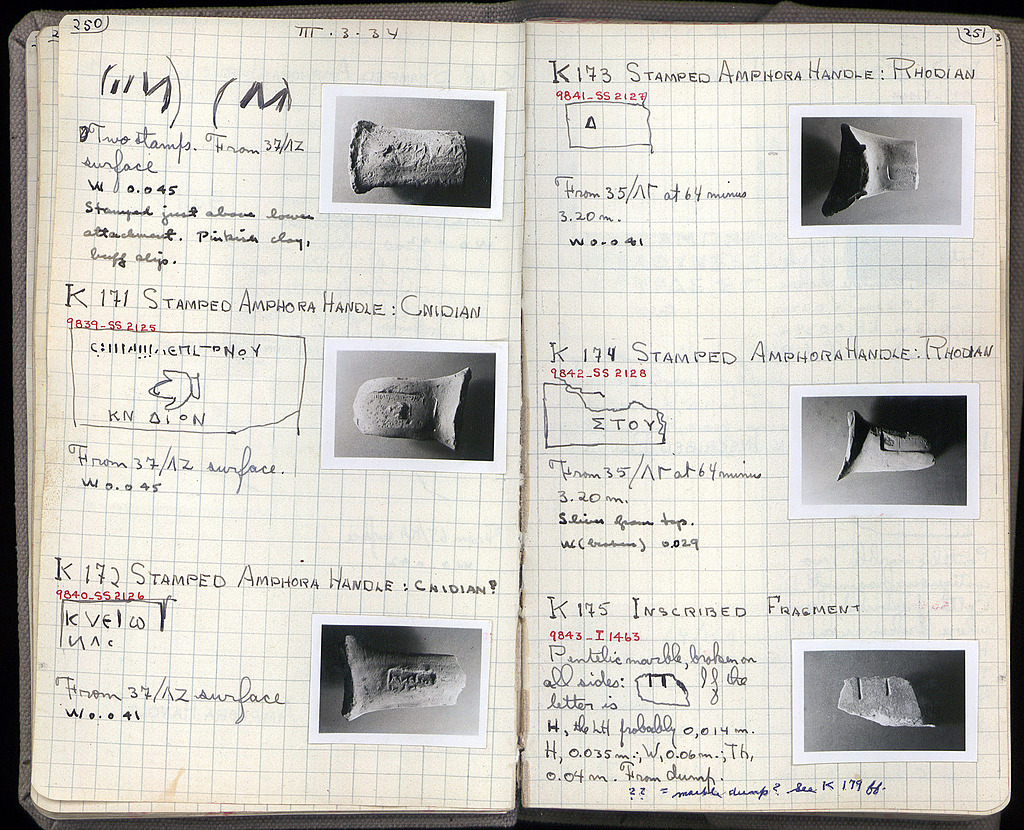 250
III . 3 . 34
Two stamps. From 37/ΛΖ
surface
W 0.045
Stamped just above lower
attachment. Pinkish clay,
buff slip.
K 171 STAMPED AMPHORA HANDLE: CNIDIAN
9839_SS 2125
ΚΝ ΔΙΟΝ
From 37/ΛΖ surface.
W 0.045
K 172 STAMPED AMPHORA HANDLE: CNIDIAN?
9840_SS 2126
From 37/ΛΖ surface
W 0.041
251
K 173 STAMPED AMPHORA HANDLE: RHODIAN
9841_SS 2127
Δ
From 35/ΛΓ at 64 minus
3.20 m.
W 0.041
K 174 STAMPED AMPHORA HANDLE: RHODIAN
9842_SS 2128
ΣΤΟΥ
From 35/ΛΓ at 64 minus
3.20 m.
Sliver from top.
W (broken) 0.029
K 175 INSCRIBED FRAGMENT
9843_I 1463
Pentelic marble, broken on
all sides: If the
letter is
H, the LH probably 0,014 m.
H, 0.035 m.; W, 0.06 m.; Th,
0.04 m. From dump.
?? = marble dump? See K 179 ff.